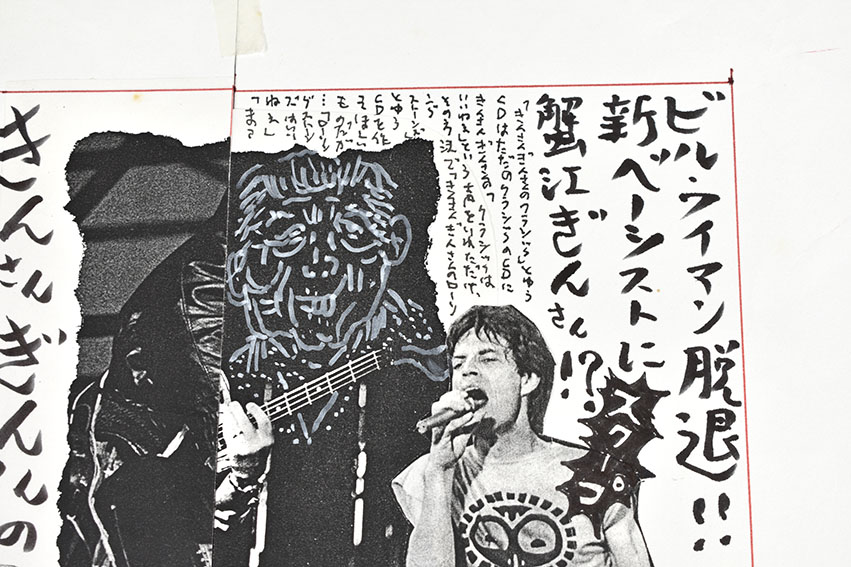 ビル・ウイマン脱退!!
新ベーシストに
スクープ
蟹江ぎんさん!?
「きんさんぎんさんのクラシック」とゆう
CDはただのクラシックのCDに
きんさんぎんさんの「クラシックは
いいねぇ」という声をいれただけ、
その手法で「きんさんぎんさんのローリ
ングストーンズ」
とゆう
CDを作
ってほし
ものだが
…「ローリン
グストーン
ズはいい
ねぇ」
「まっ
きんさんぎんさんの